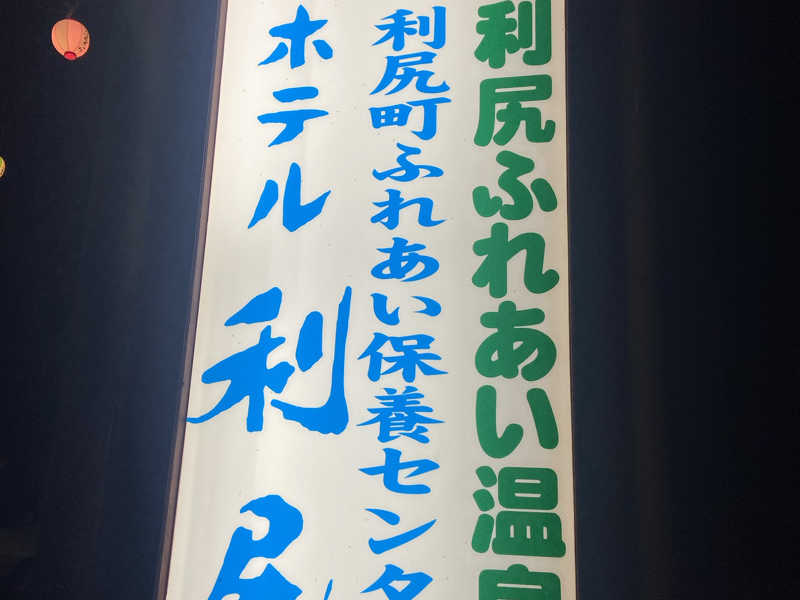 利尻ふれあい温
利尻町ふれあい保養センタ
ホテル利尻